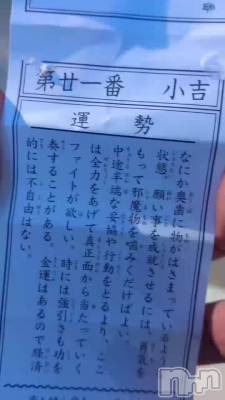 第廿一番　小吉
運勢
なにか奥歯に物がはさまっているよう
状態。願い事を成就させるには、勇気を
もって邪魔物を噛みくだけばよい。
中途半端な妥協や行動をとるより、ここ
は全力をあげて真正面から当たっていく
ファイトが欲しい。時には強引さも功を
奏することがある。金運はあるので経済
的には不自由はない。